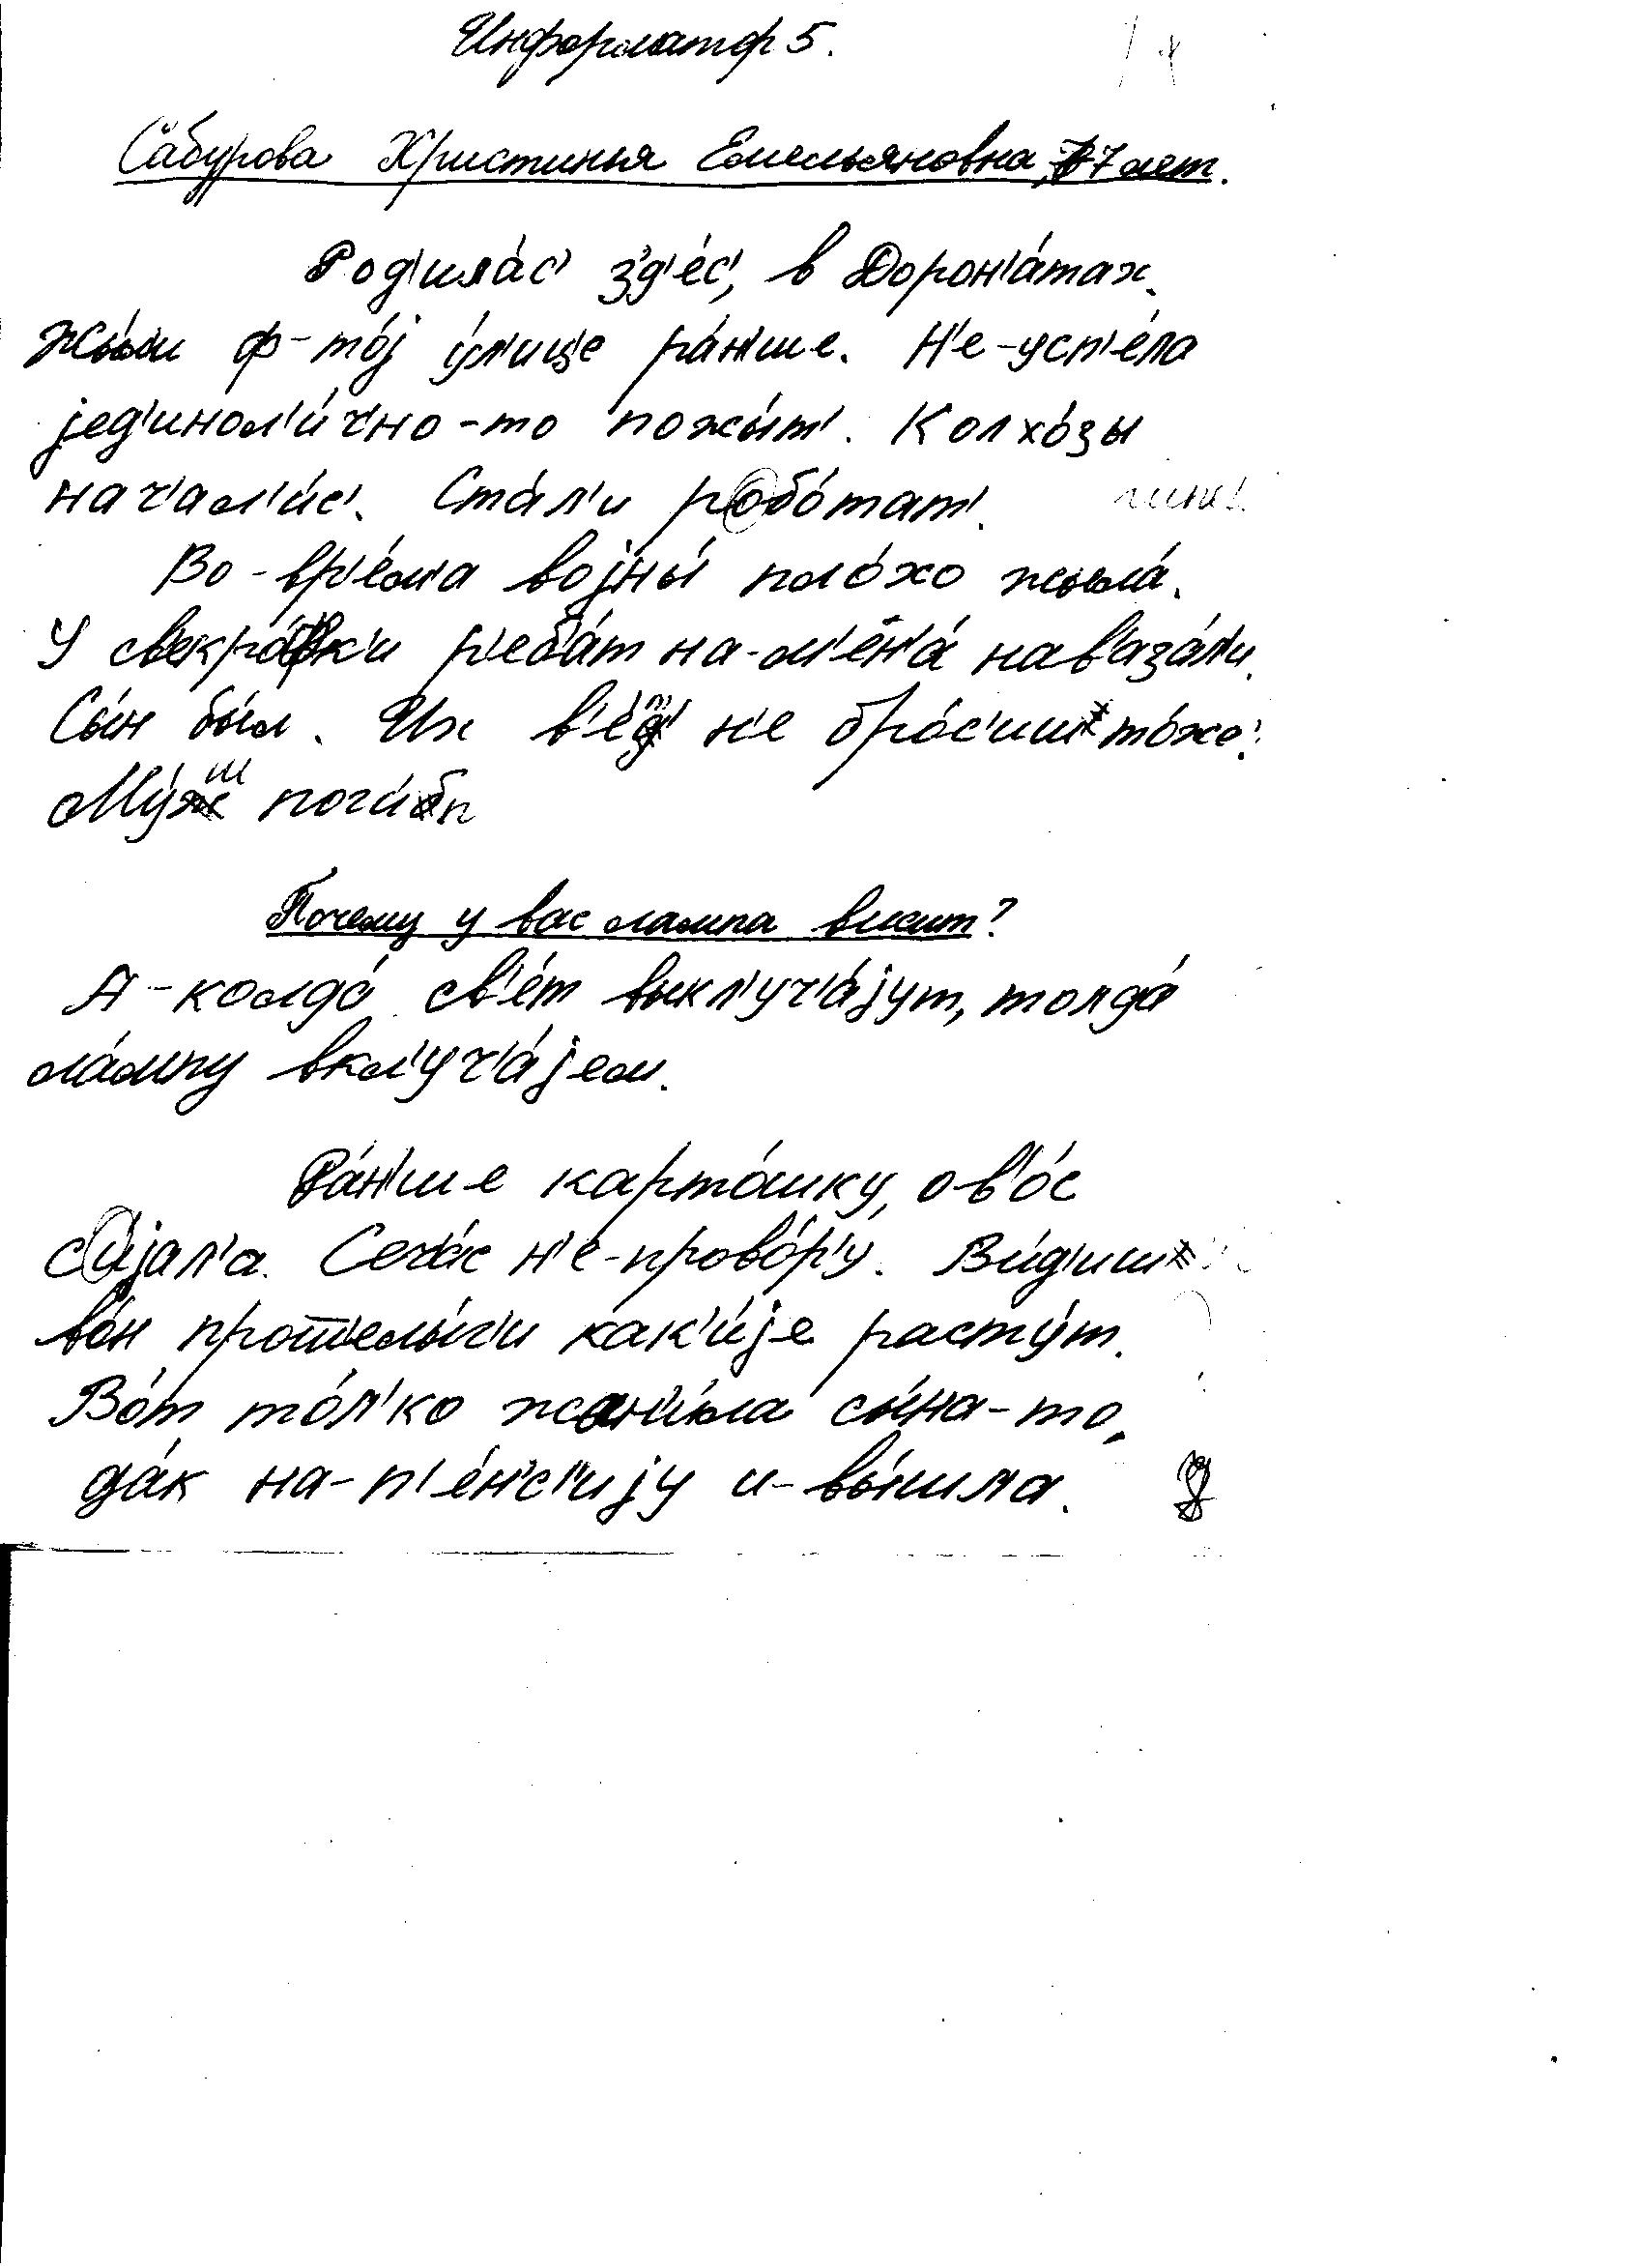 Информатор 5.
Сабурова Христинья Емельяновна, 77 лет.
Род'илáс' з'д'éс', в Дорон'áтах.
Жы́ли ф-тóј ýл'ице рáн'ше. Н'е-усп'éла
јед'инол'и́ч'но-то пожы́т'. Колхóзы
нач'ал'и́с'. Стáл'и робóтат'.
Во-вр'éм'а војны́ плóхо жылá.
У св'екрóфк'и р'еб'áт на-м'ен'á нав'азáл'и.
Сы́н бы́л. Их в'éт' н'е брóс'иш тóже.
Мýш поги́п
Почему у вас лампа висит?
А-колдá св'éт выкл'уч'áјут, толдá
лáмпу вкл'уч'áјем.
Рáн'ше картóшку, ов'óс
с'и́јал'а. Сеч'áс н'е-провóр'у. Ви́д'иш
вóн прот'елы́г'и как'и́је растýт.
Вóт тóл'ко жан'и́ла сы́на-то,
дáк на-п'éн'с'ијy и-вы́шла.